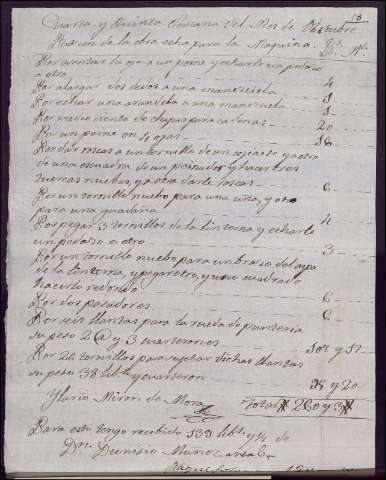 18
quarta y Quinta Semana del Mes de Octubre
Razon de la obra echa para la Maquina Rs Ms
Por asentar la a un peine y echarle un pedazo
a otro
Por alargar dos dedos a una manezuela 4
Por echar una arandela a una manezuela 1
Por medio ciento de chapas para cadenas 20
Por un peine en 4 ojas 16
Por dar roscas a un tornillo de un cojinete y a otro
de una escuadra de un peinador y hacer tres
tuercas nuebas, y a otra darle roscas 6
Por un tornillo nuebo para una uña, y otro
para una guadaña 4
Por pegar 3 tornillos de la linterna y echarle
un pedazo a otro 3
Por un tornillo nuebo para un brazo del
de la linterna, y pegar otro, y un cuadrado
hacerlo redondo 6
Por dos pasadores 6
Por seis llantas para la rueda de punteria
su peso 2 @ y 3 cuarterones y 17
Por 24 tornillos para sujetar dichas llantas
su peso 38 lib y cuarteron y 20
Ylario Miron de Mora Total 260 y 3
Para esto tengo recibido 139 lib y 1/4 de
Dn. Dionisio Muñoz